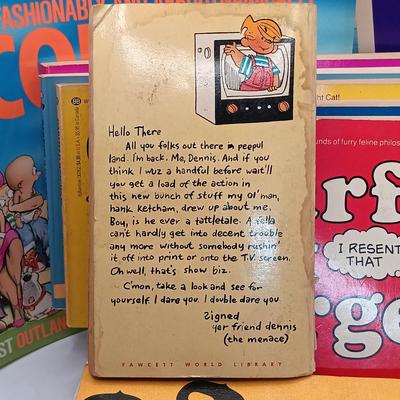 FASHIONABLY
CO
Hello There
All you folks out there in peepul
land. I'm back. Me, Dennis. And if you
think I wuz a handful before wait'll
you get a load of the action in
this new bunch of stuff my ol' man,
hank ketcham, drew up about me.
Boy, is he ever a tattletale. A fella
can't hardly get into decent trouble
any more without somebody rushin'
it off into print or onto the T.V. screen.
Oh well, that's show biz.
C'mon, take a look and see for
yourself. I dare you. I double dare you.
Signed
yer friend dennis
(the menace)
FAWCETT WORLD LIBRARY
ht Cat!
unds of furry feline philos
rf
I RESENT
THAT
rge
ST OUTLAN